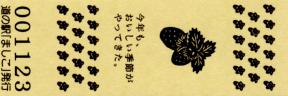 今年も
おいしい季節が
やってきた。
001123
道の駅「ましこ」発行